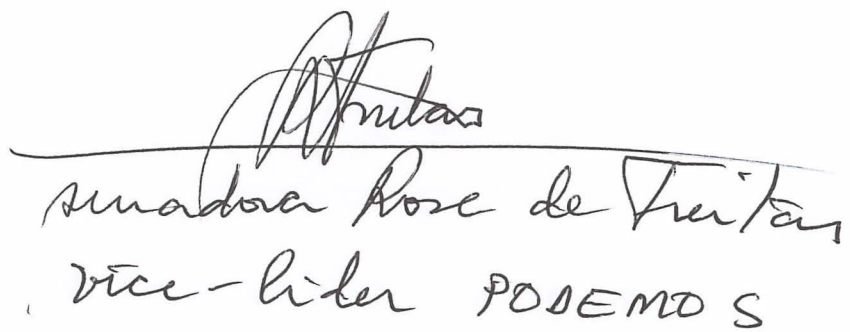 senadora Rose de Freitas
vice-líder PODEMOS